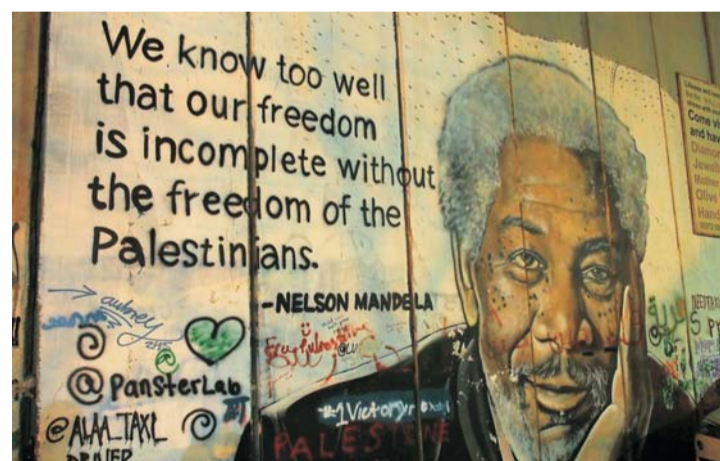 We know too well
that our freedom
is incomplete without
the freedom of the
Palestinians.
-NELSON MANDELA
aubrey
Free Palestine
@PansterLab
@ALAA_TAXI
DRIVER
#1Victory
PALESTINE
Come vi
and hav
Diamon
Jewell
Mother
Olive
Han